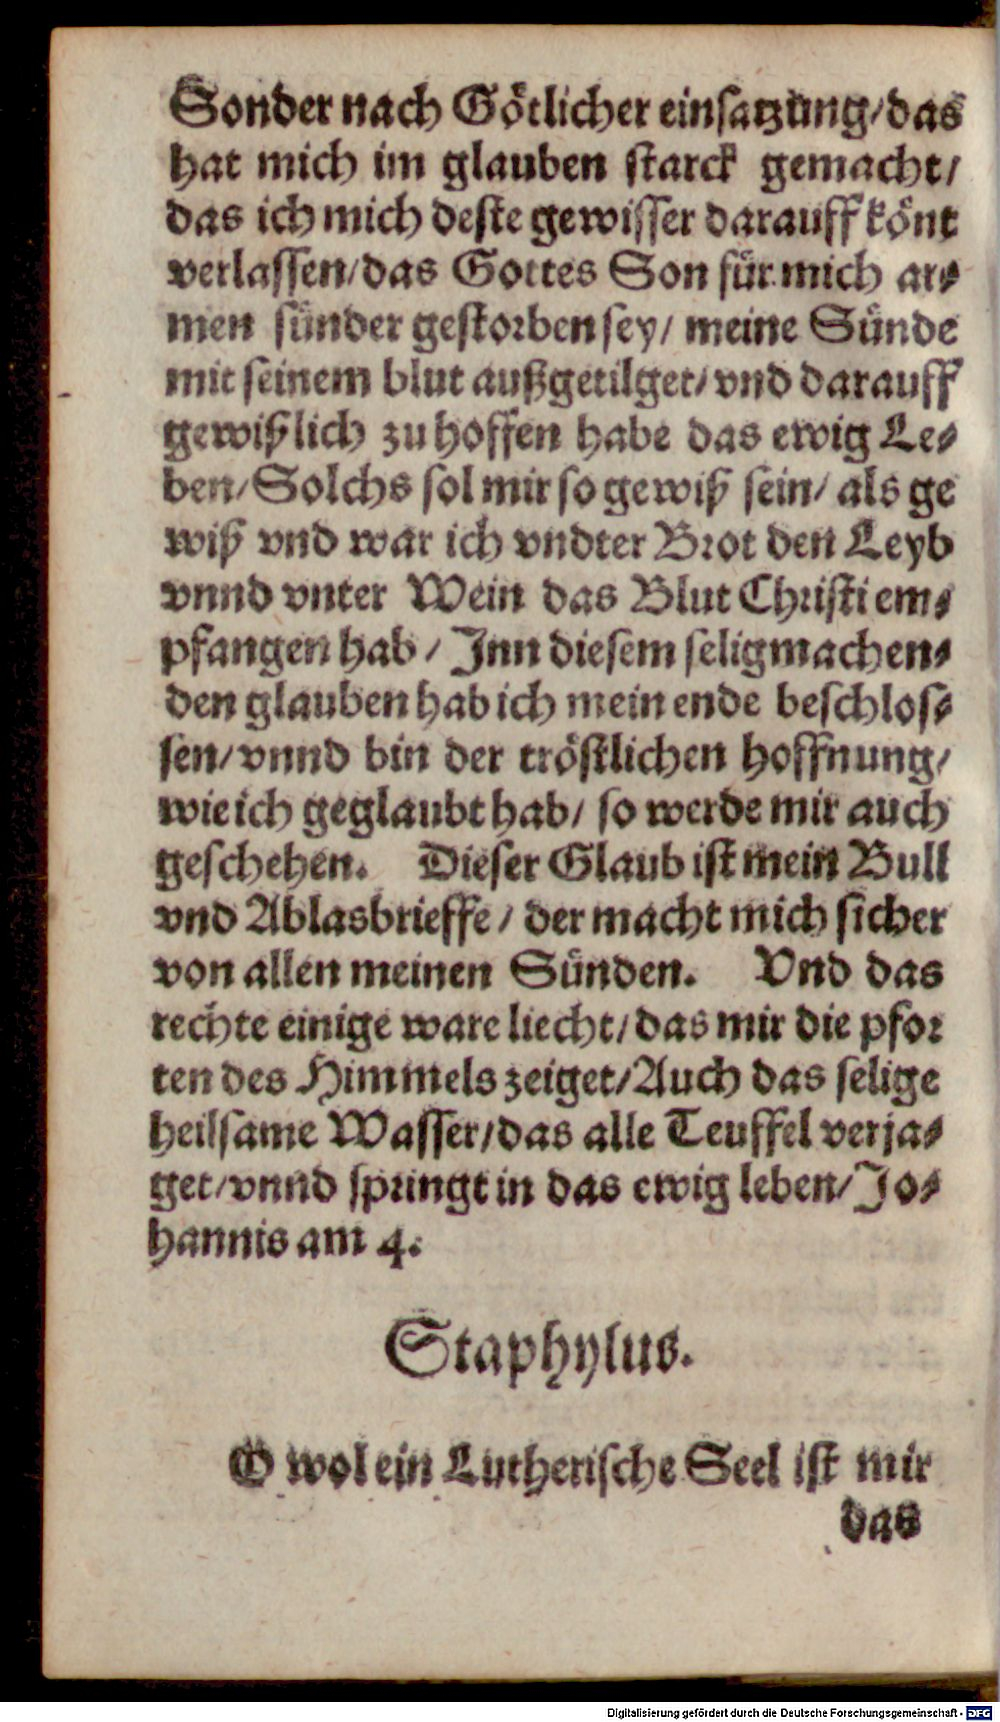 Sonder nach Götlicher einsatzung/das
hat mich im glauben starck gemacht/
das ich mich deste gewisser darauff könt
verlassen/das Gottes Son für mich ar⸗
men sünder gestorben sey/ meine Sünde
mit seinem blut außgetilget/ vnd darauff
gewißlich zu hoffen habe das ewig Le⸗
ben/Solchs sol mir so gewiß sein/ als ge
wiß vnd war ich vndter Brot den Leyb
vnnd vnter Wein das Blut Christi em⸗
pfangen hab / Inn diesem seligmachen⸗
den glauben hab ich mein ende beschlos⸗
sen/vnnd bin der tröstlichen hoffnung/
wie ich geglaubt hab/ so werde mir auch
geschehen. Dieser Glaub ist mein Bull
vnd Ablasbrieffe / der macht mich sicher
von allen meinen Sünden. Vnd das
rechte einige ware liecht/das mir die pfor
ten des Himmels zeiget/Auch das selige
heilsame Wasser/das alle Teuffel verja⸗
get/vnnd springt in das ewig leben/Jo⸗
hannis am 4.
Staphylus.
O wol ein Lutherische Seel ist mir
das
Digitalisierung gefördert durch die Deutsche Forschungsgemeinschaft - DFG